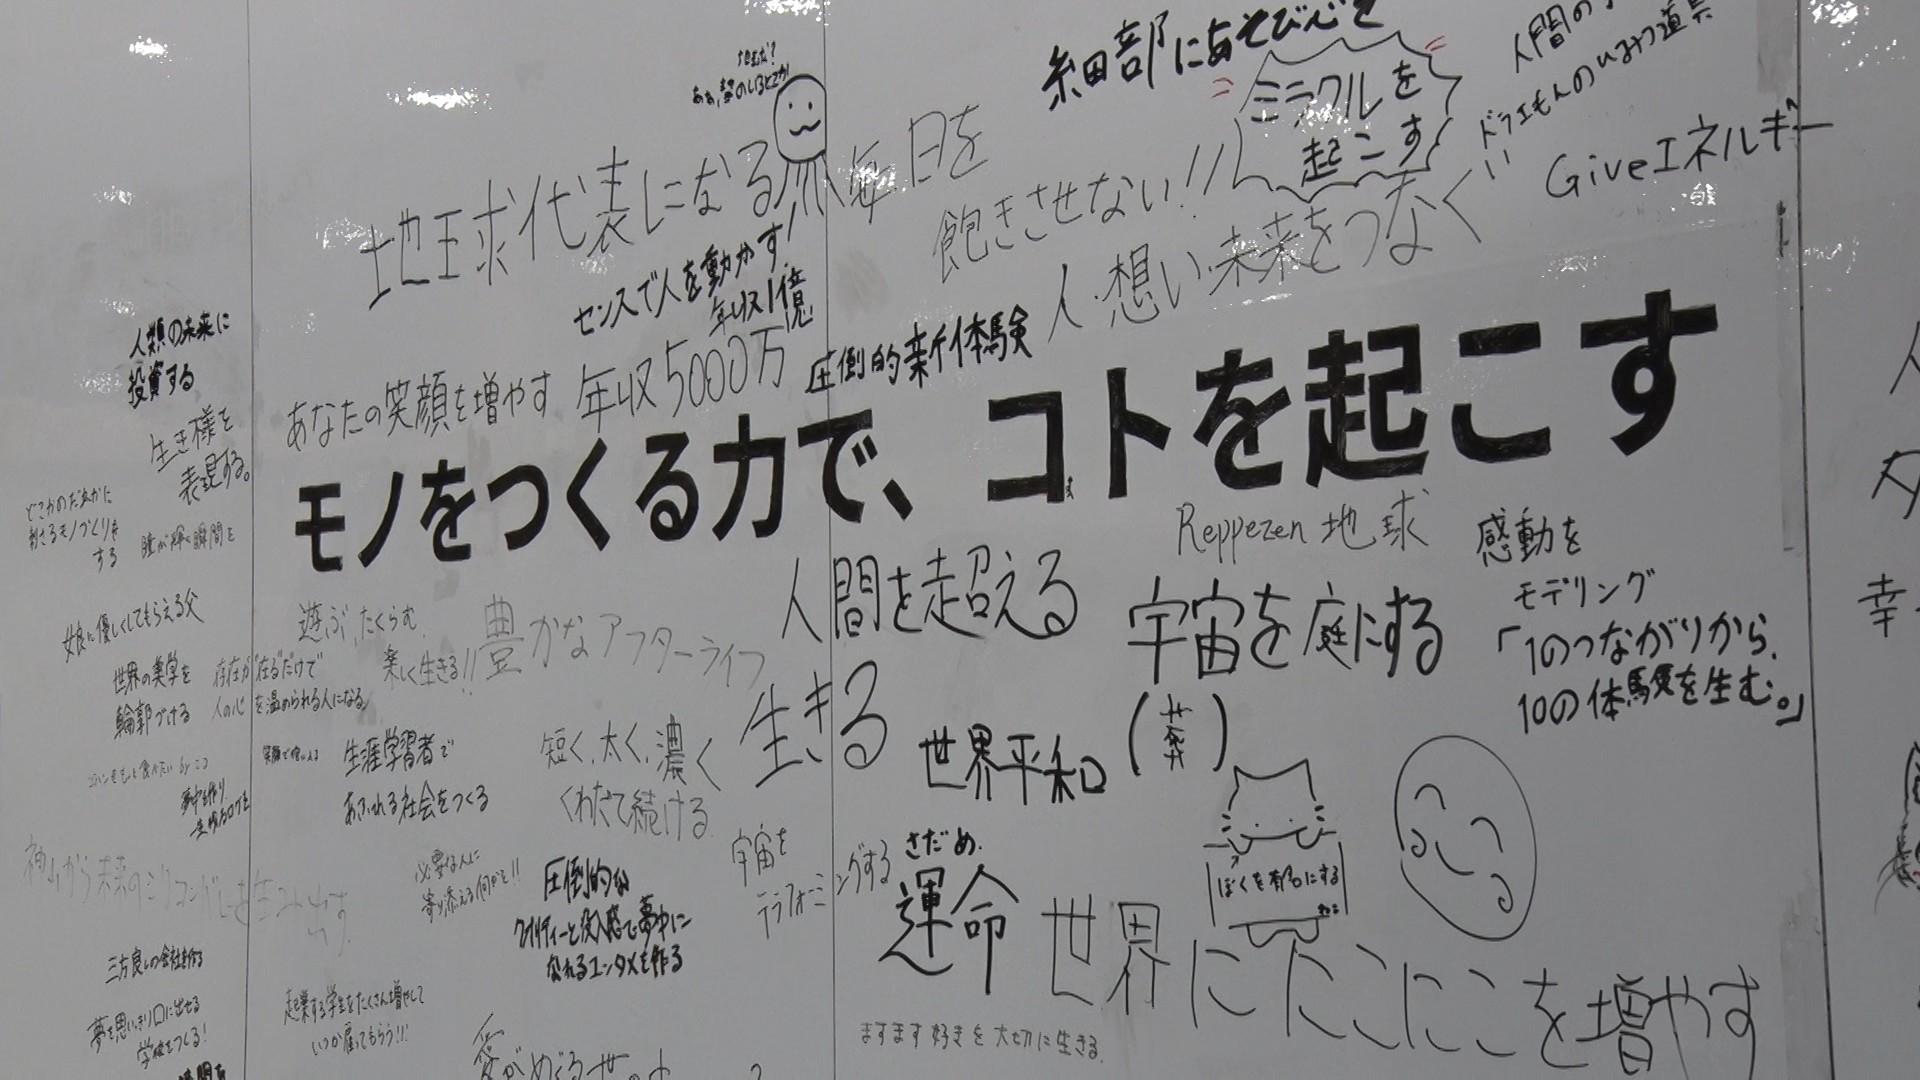 細部にあそび心を
ミラクルを
起こす
人間の
ドラエもんのひみつ道具
Giveエネルギー
地球代表になる
毎日を
飽きさせない!!
センスで人を動かす!
年収1億
人・想い・未来をつなぐ
人類の未来に
投資する
あなたの笑顔を増やす
年収5000万
圧倒的新体験
生き様を
表現する。
モノをつくる力で、コトを起こす
どこかのだれかに
刺さるモノづくりを
する
瞳が輝く瞬間を
Reppezen 地球
感動を
モデリング
人間を超える
宇宙を庭にする
「1のつながりから、
10の体験を生む。」
娘に優しくしてもらえる父
遊ぶ、たくらむ
楽しく生きる!!
豊かなアフターライフ
世界の美学を
輪郭づける
存在が"在る"だけで
人の心を温められる人になる
生きる
世界平和
生涯学習者で
あふれる社会をつくる
短く、太く、濃く
くわだて続ける
宇宙を
テラフォーミングする
ぼくを有名にする
ねこ
必要な人に
寄り添える何かを!!
圧倒的な
クオリティーと没入感で夢中に
なれるエンタメを作る
さだめ
運命
世界ににこにこを増やす
三方良しの会社を作る
夢を思いっきり口に出せる
学校をつくる!
起業する学生をたくさん増やして
いつか雇ってもらう!!!
ますます好きを大切に生きる